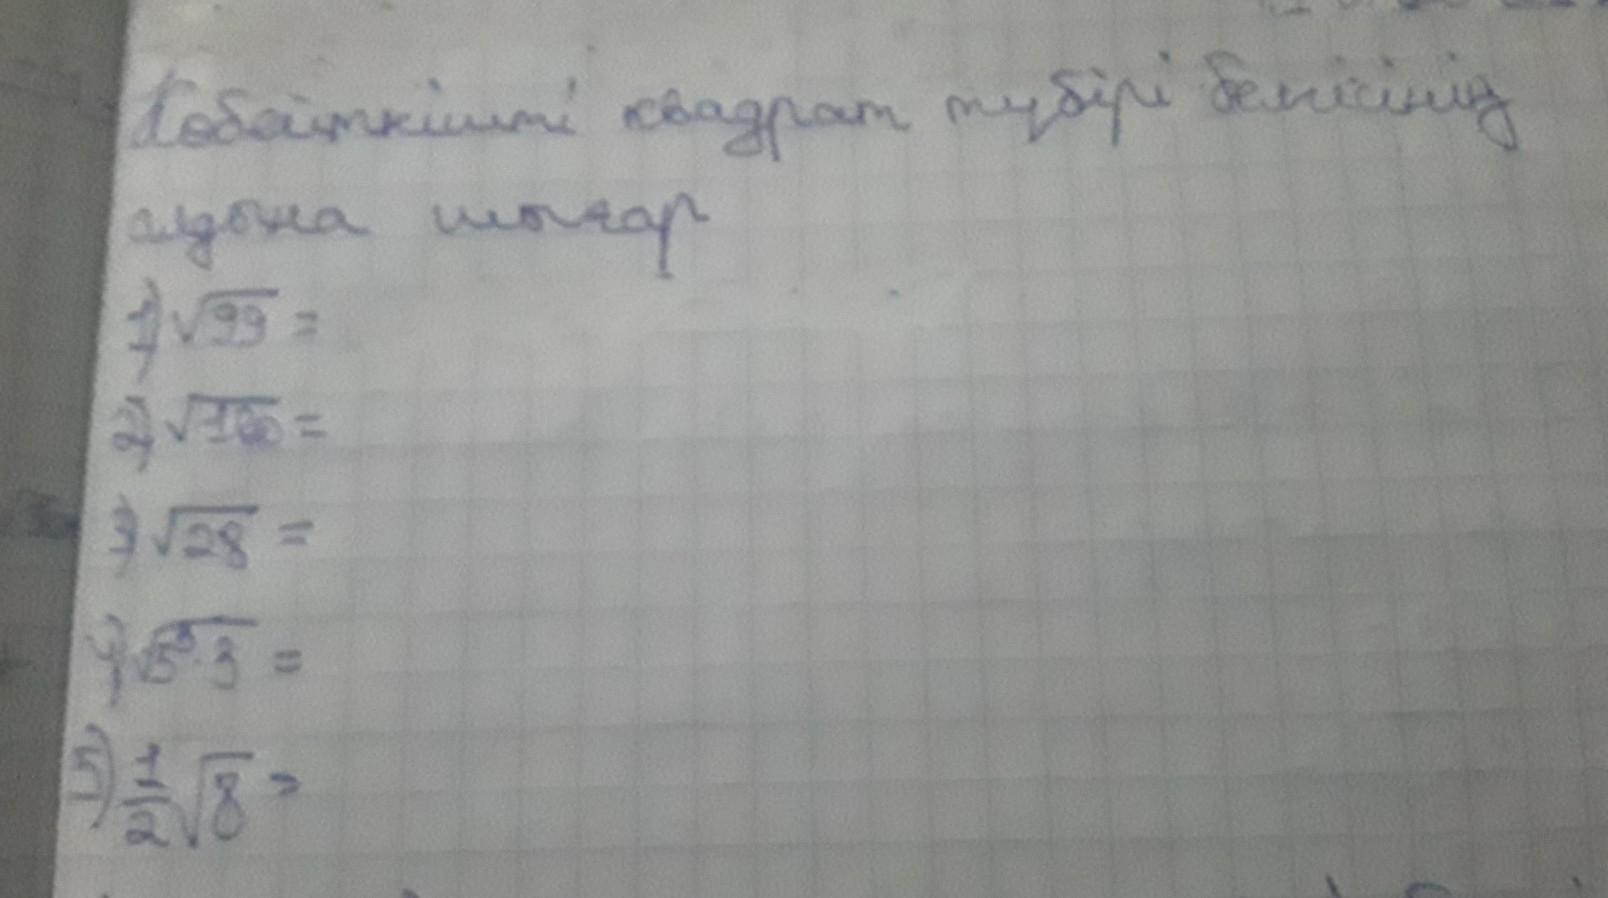 Көбейткішті квадрат түбірі белгісінің
алдына шығар
1) √99 =
2) √160 =
3) √28 =
4) √5³·3 =
5) 1/2 √8 =